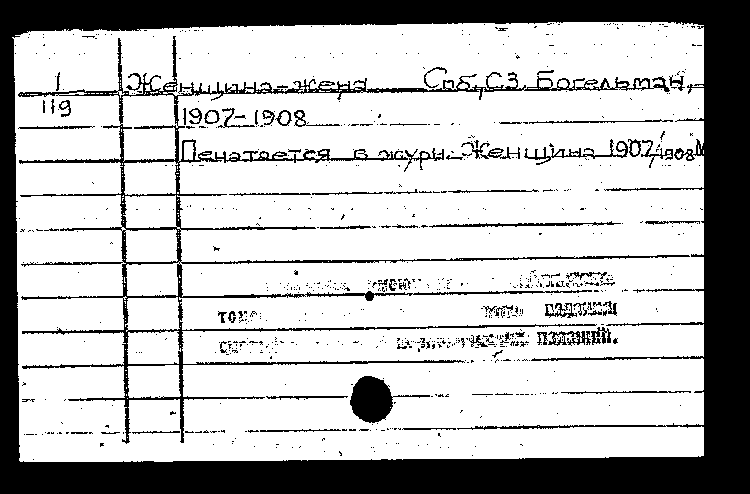 1 Женщина-жена Спб, С.З. Богельман,
119
1907-1908
Печатается в журн. Женщина 1907/1908 №
изданий.